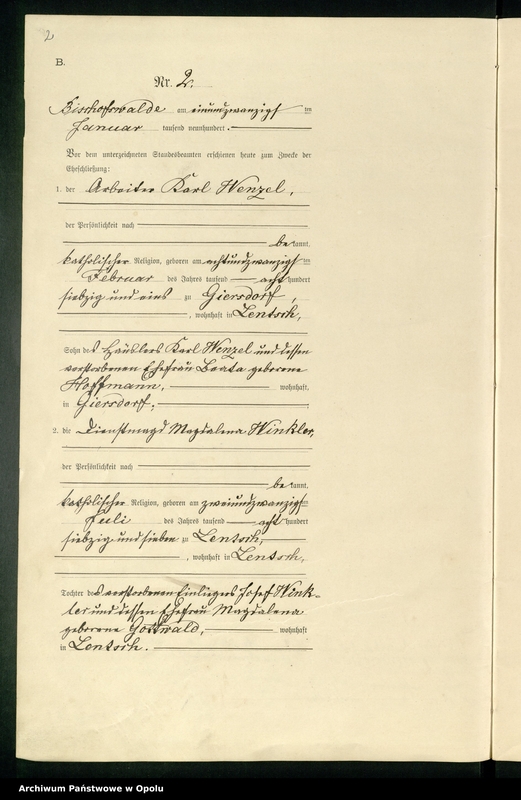 2
B.
Nr. 2.
Bischofswalde am einundzwanzigsten
Januar tausend neunhundert.
Vor dem unterzeichneten Standesbeamten erschienen heute zum Zwecke der
Eheschließung:
1. der Arbeiter Karl Wenzel,
der Persönlichkeit nach
bekannt,
katholischer Religion, geboren am achtundzwanzigsten
Februar des Jahres tausend acht hundert
siebzig und eins zu Giersdorf,
, wohnhaft in Lentsch,
Sohn des Häuslers Karl Wenzel und dessen
verstorbenen Ehefrau Beata geborene
Hoffmann, wohnhaft,
in Giersdorf;
2. die Dienstmagd Magdalena Winkler,
der Persönlichkeit nach
bekannt,
katholischer Religion, geboren am zweiundzwanzigsten
Juli des Jahres tausend acht hundert
siebzig und sieben zu Lentsch,
, wohnhaft in Lentsch,
Tochter des verstorbenen Einliegers Josef Wink-
ler und dessen Ehefrau Magdalena
geborene Gottwald, wohnhaft
in Lentsch.
Archiwum Państwowe w Opolu